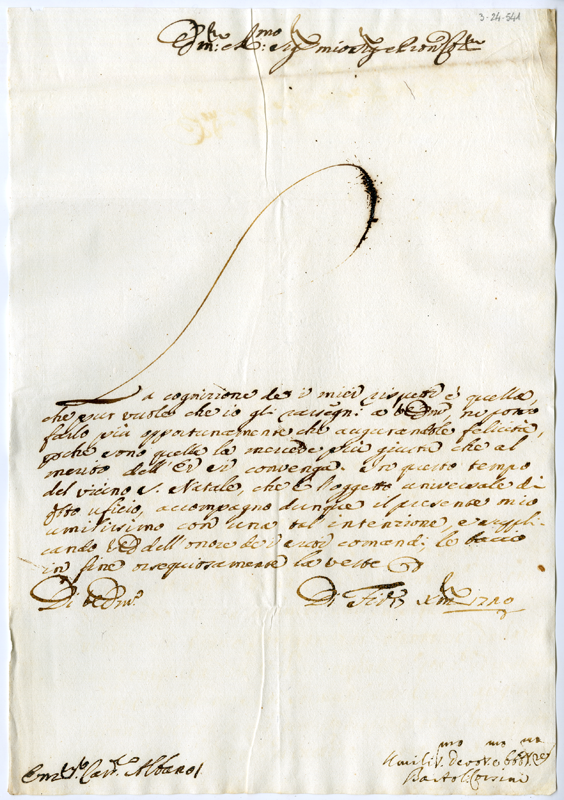 3-24-541
Em: e R:mo Sig mio Sig e Pron Col:mo
La cognizione de i miei rispetti è quella,
che pur vuole che io gli rassegni a VEm: ne posso
farlo più opportunamente che augurandole felicità,
poche sono quelle la mercede più giusta che al
merito dell' EV si convenga. In questo tempo
del vicino S. Natale, che è soggetto universale di
questo uficio, accompagno dunque il presente mio
umilissimo con una tal intenzione, e suppli-
cando VE dell'onore de i suoi comandi; le bacio
in fine ossequiosamente la veste
Di VEm:
Di Fir: Xbre 1720
Em: Sig: Card: Albani
Umiliss:mo devot:mo obbl:mo
Bartol: Corsini